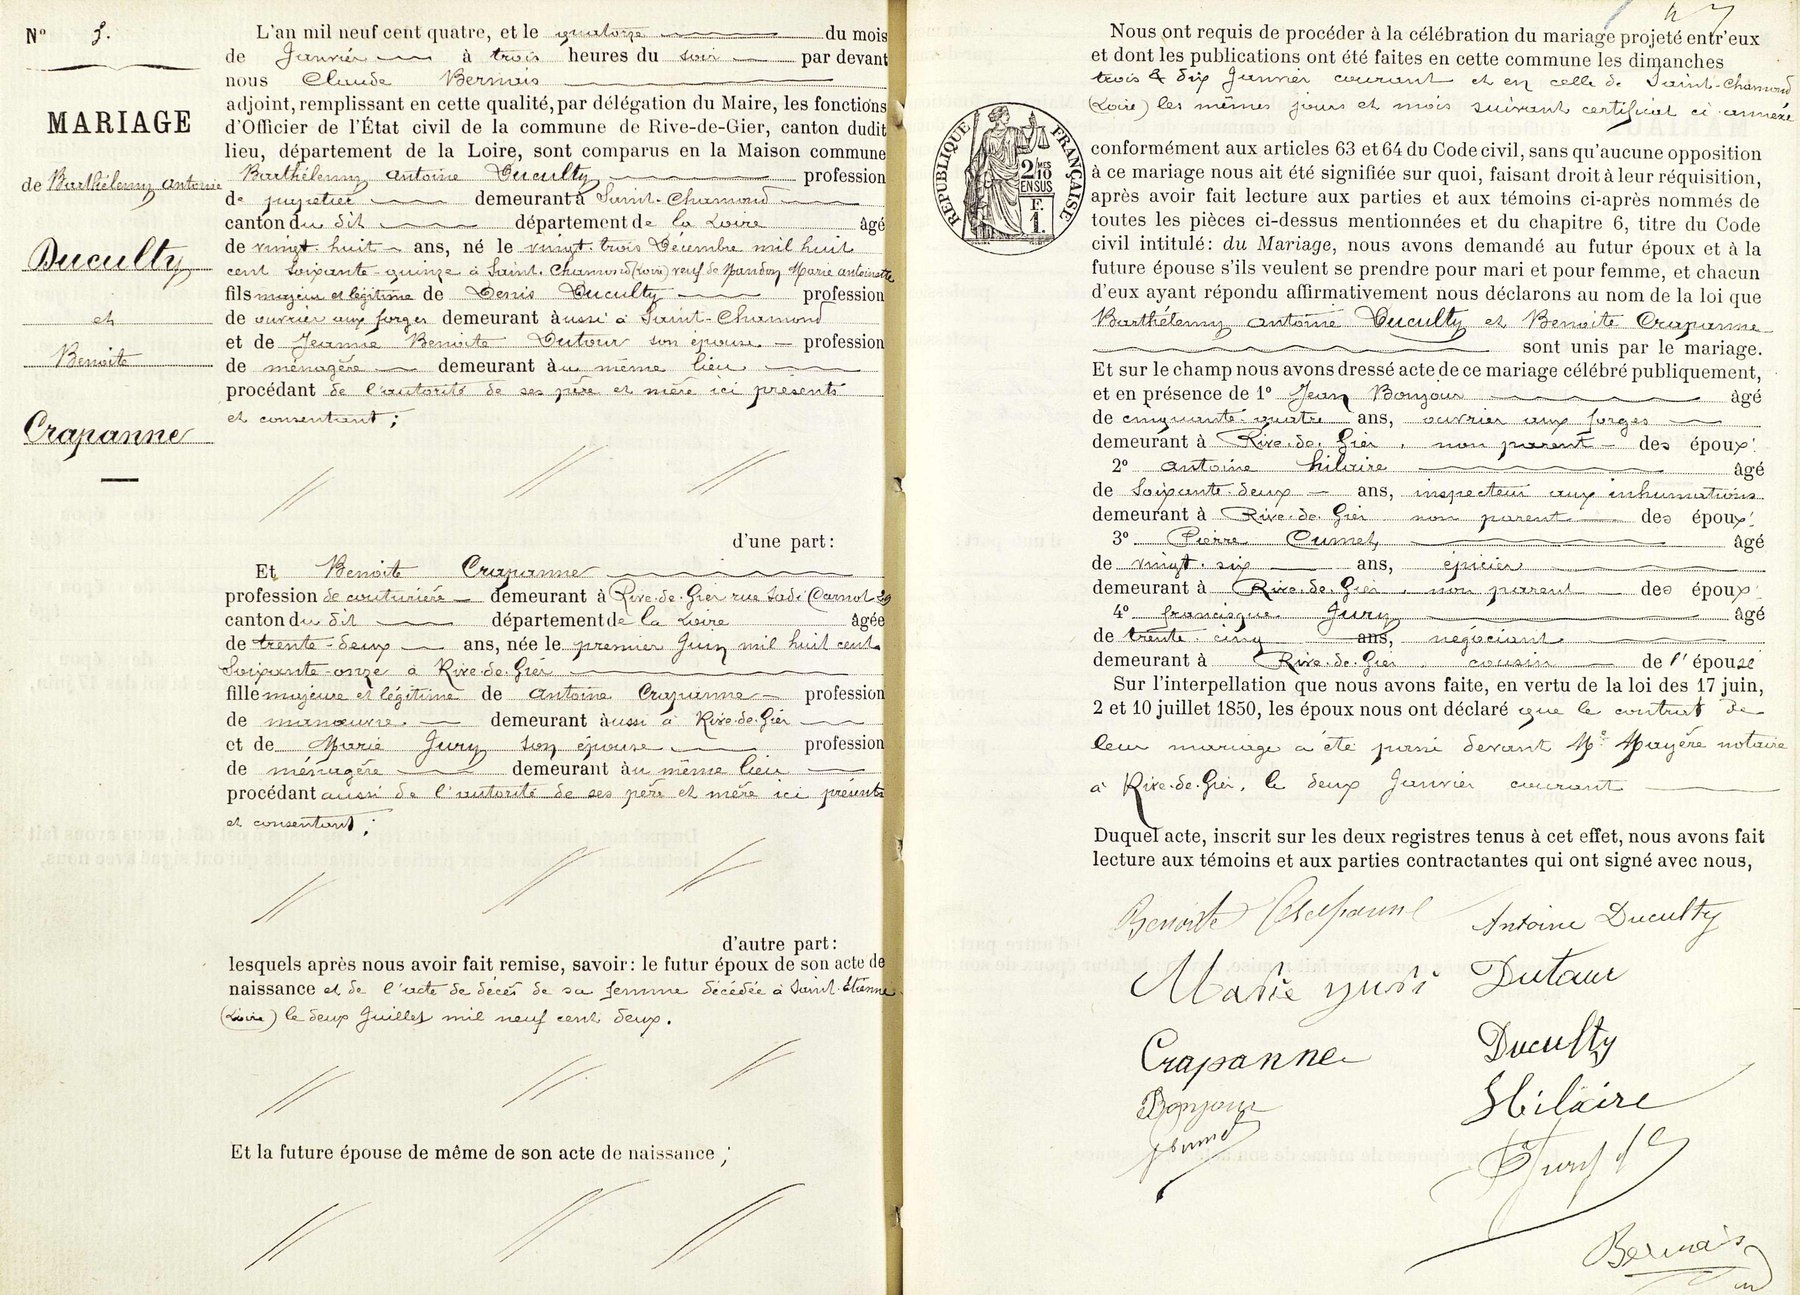 N° 5.
MARIAGE
de Barthélemy Antoine
Duculty
et
Benoite
Crapanne
L'an mil neuf cent quatre, et le quatorze du mois
de Janvier à trois heures du soir par devant
nous Claude Bernais
adjoint, remplissant en cette qualité, par délégation du Maire, les fonctions
d'Officier de l'État civil de la commune de Rive-de-Gier, canton dudit
lieu, département de la Loire, sont comparus en la Maison commune
Barthélemy Antoine Duculty profession
de demeurant à Saint-Chamond
canton du dit département de la Loire âgé
de vingt-huit ans, né le vingt-trois Décembre mil huit
cent soixante-quinze à Saint-Chamond (Loire) veuf de Mandon Marie Antoinette
fils majeur et légitime de Denis Duculty profession
de ouvrier aux forges demeurant aussi à Saint-Chamond
et de Jeanne Benoite Dutour son épouse profession
de ménagère demeurant au même lieu
procédant de l'autorité de ses père et mère ici présents
et consentant ;
d'une part :
Et Benoite Crapanne
profession de couturière demeurant à Rive-de-Gier rue Sadi Carnot 29
canton du dit département de la Loire âgée
de trente-deux ans, née le premier Juin mil huit cent
soixante-onze à Rive-de-Gier
fille majeure et légitime de Antoine Crapanne profession
de manœuvre demeurant aussi à Rive-de-Gier
et de Marie Jury son épouse profession
de ménagère demeurant au même lieu
procédant aussi de l'autorité de ses père et mère ici présents
et consentant ;
d'autre part :
lesquels après nous avoir fait remise, savoir : le futur époux de son acte de
naissance et de l'acte de décès de sa femme décédée à Saint-Étienne
(Loire) le deux Juillet mil neuf cent deux.
Et la future épouse de même de son acte de naissance ;
Nous ont requis de procéder à la célébration du mariage projeté entr'eux
et dont les publications ont été faites en cette commune les dimanches
trois & dix Janvier courant et en celle de Saint-Chamond
(Loire) les mêmes jours et mois suivant certificat ci-annexé
RÉPUBLIQUE FRANÇAISE
2/10 EN SUS
F. 1.
conformément aux articles 63 et 64 du Code civil, sans qu'aucune opposition
à ce mariage nous ait été signifiée sur quoi, faisant droit à leur réquisition,
après avoir fait lecture aux parties et aux témoins ci-après nommés de
toutes les pièces ci-dessus mentionnées et du chapitre 6, titre du Code
civil intitulé : du Mariage, nous avons demandé au futur époux et à la
future épouse s'ils veulent se prendre pour mari et pour femme, et chacun
d'eux ayant répondu affirmativement nous déclarons au nom de la loi que
Barthélemy Antoine Duculty et Benoite Crapanne
sont unis par le mariage.
Et sur le champ nous avons dressé acte de ce mariage célébré publiquement,
et en présence de 1° Jean Bonjour âgé
de cinquante-quatre ans, ouvrier aux forges
demeurant à Rive-de-Gier, non parent des époux
2° Antoine Hilaire âgé
de soixante-deux ans, inspecteur aux inhumations
demeurant à Rive-de-Gier non parent des époux
3° Pierre âgé
de vingt-six ans, épicier
demeurant à Rive-de-Gier, non parent des époux
4° Francisque Jury âgé
de trente-cinq ans, négociant
demeurant à Rive-de-Gier, cousin de l'épouse
Sur l'interpellation que nous avons faite, en vertu de la loi des 17 juin,
2 et 10 juillet 1850, les époux nous ont déclaré que le contrat de
leur mariage a été passé devant Me Mayère notaire
à Rive-de-Gier, le deux Janvier courant
Duquel acte, inscrit sur les deux registres tenus à cet effet, nous avons fait
lecture aux témoins et aux parties contractantes qui ont signé avec nous,
Benoite Crapanne Antoine Duculty
Marie Dutour
Crapanne Duculty
Bonjour Hilaire
Jury
Bernais